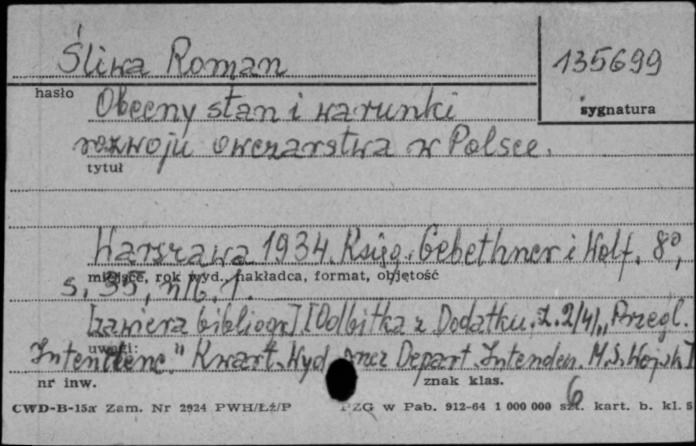 Śliwa Roman
135699
hasło
sygnatura
Obecny stan i warunki
rozwoju owczarstwa w Polsce.
tytuł
Warszawa 1934. Księg. Gebethner i Wolf. 8°,
miejsce, rok wyd., nakładca, format, objętość
s. 35, nlb. 1.
[zawiera bibliogr.] [Odbitka z Dodatku, z. 2/4/ „Przegl.
uwagi:
Intendenc." Kwart. Wyd. przez Depart. Intenden. M.S.Wojsk]
nr inw.
znak klas.
6
CWD-B-15a Zam. Nr 2924 PWH/Łź/P
PZG w Pab. 912-64 1 000 000 szt. kart. b. kl. 5